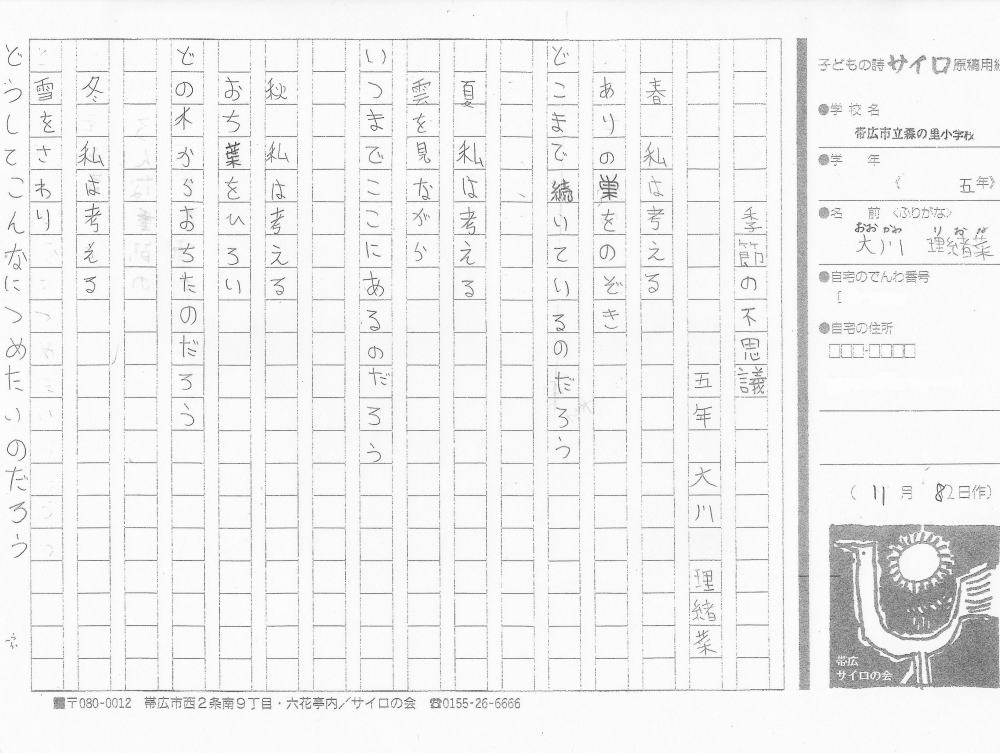 子どもの詩 サイロ 原稿用紙
●学校名
帯広市立森の里小学校
●学　年
《　五年》
●名　前〈ふりがな〉
おおかわ　りおな
大川　理緒菜
●自宅のでんわ番号
●自宅の住所
□□□-□□□□
（11月　日作）
帯広
サイロの会
季節の不思議
五年　大川　理緒菜
春　私は考える
ありの巣をのぞき
どこまで続いているのだろう
夏　私は考える
雲を見ながら
いつまでここにあるのだろう
秋　私は考える
おち葉をひろい
どの木からおちたのだろう
冬　私は考える
雪をさわり
どうしてこんなにつめたいのだろう
〒080-0012　帯広市西2条南9丁目・六花亭内／サイロの会　☎0155-26-6666